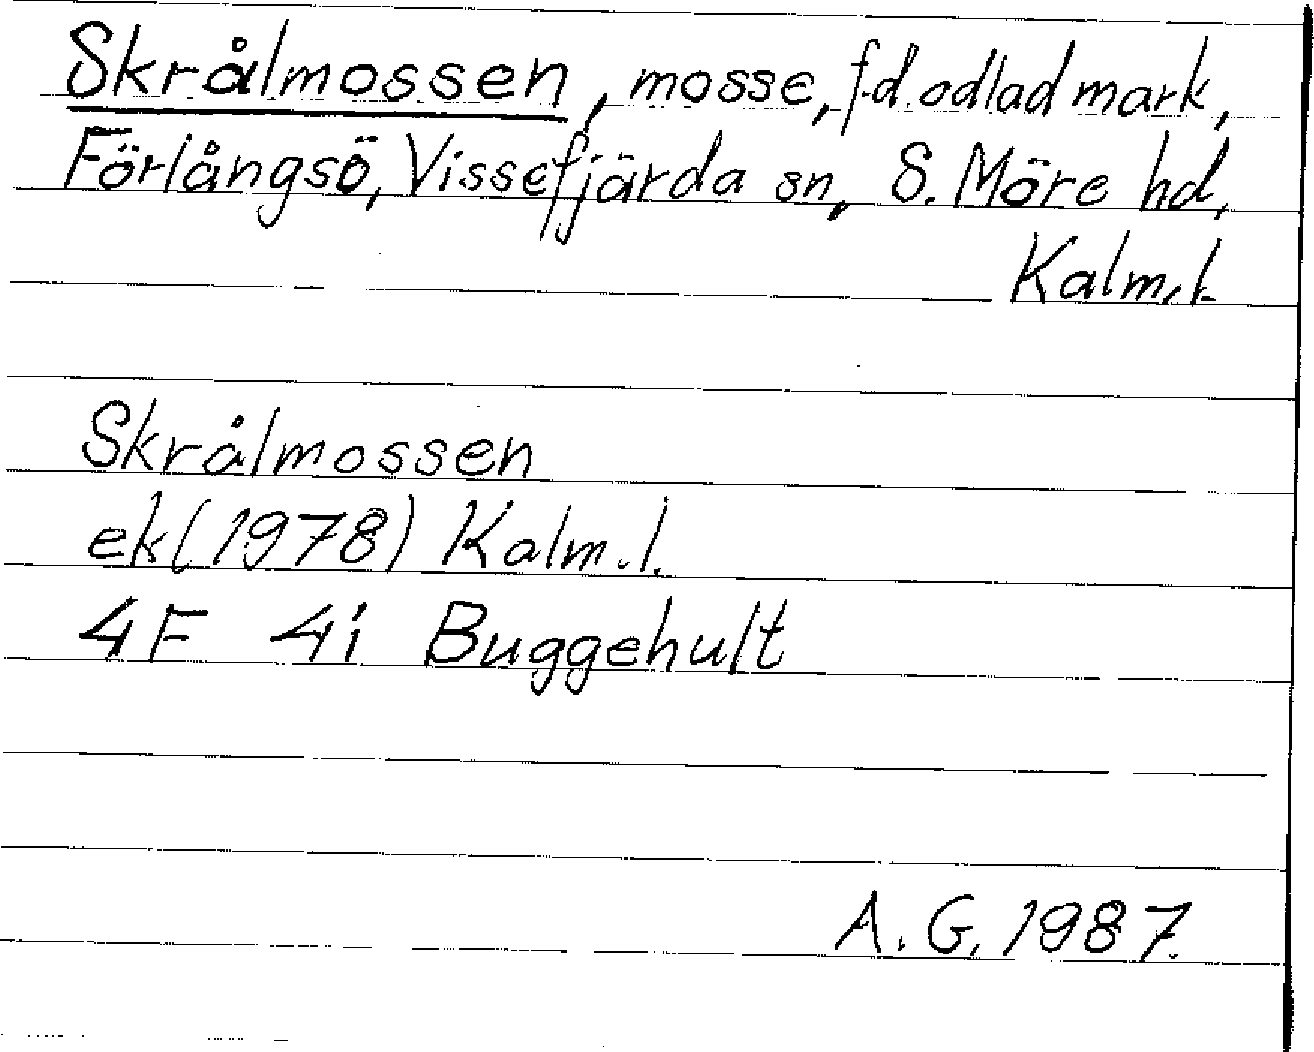 Skrålmossen, mosse, f.d. odlad mark,
Förlångsö, Vissefjärda sn, S. Möre hd,
Kalm.l.
Skrålmossen
ek(1978) Kalm.l.
4F 4i Buggehult
A.G. 1987.